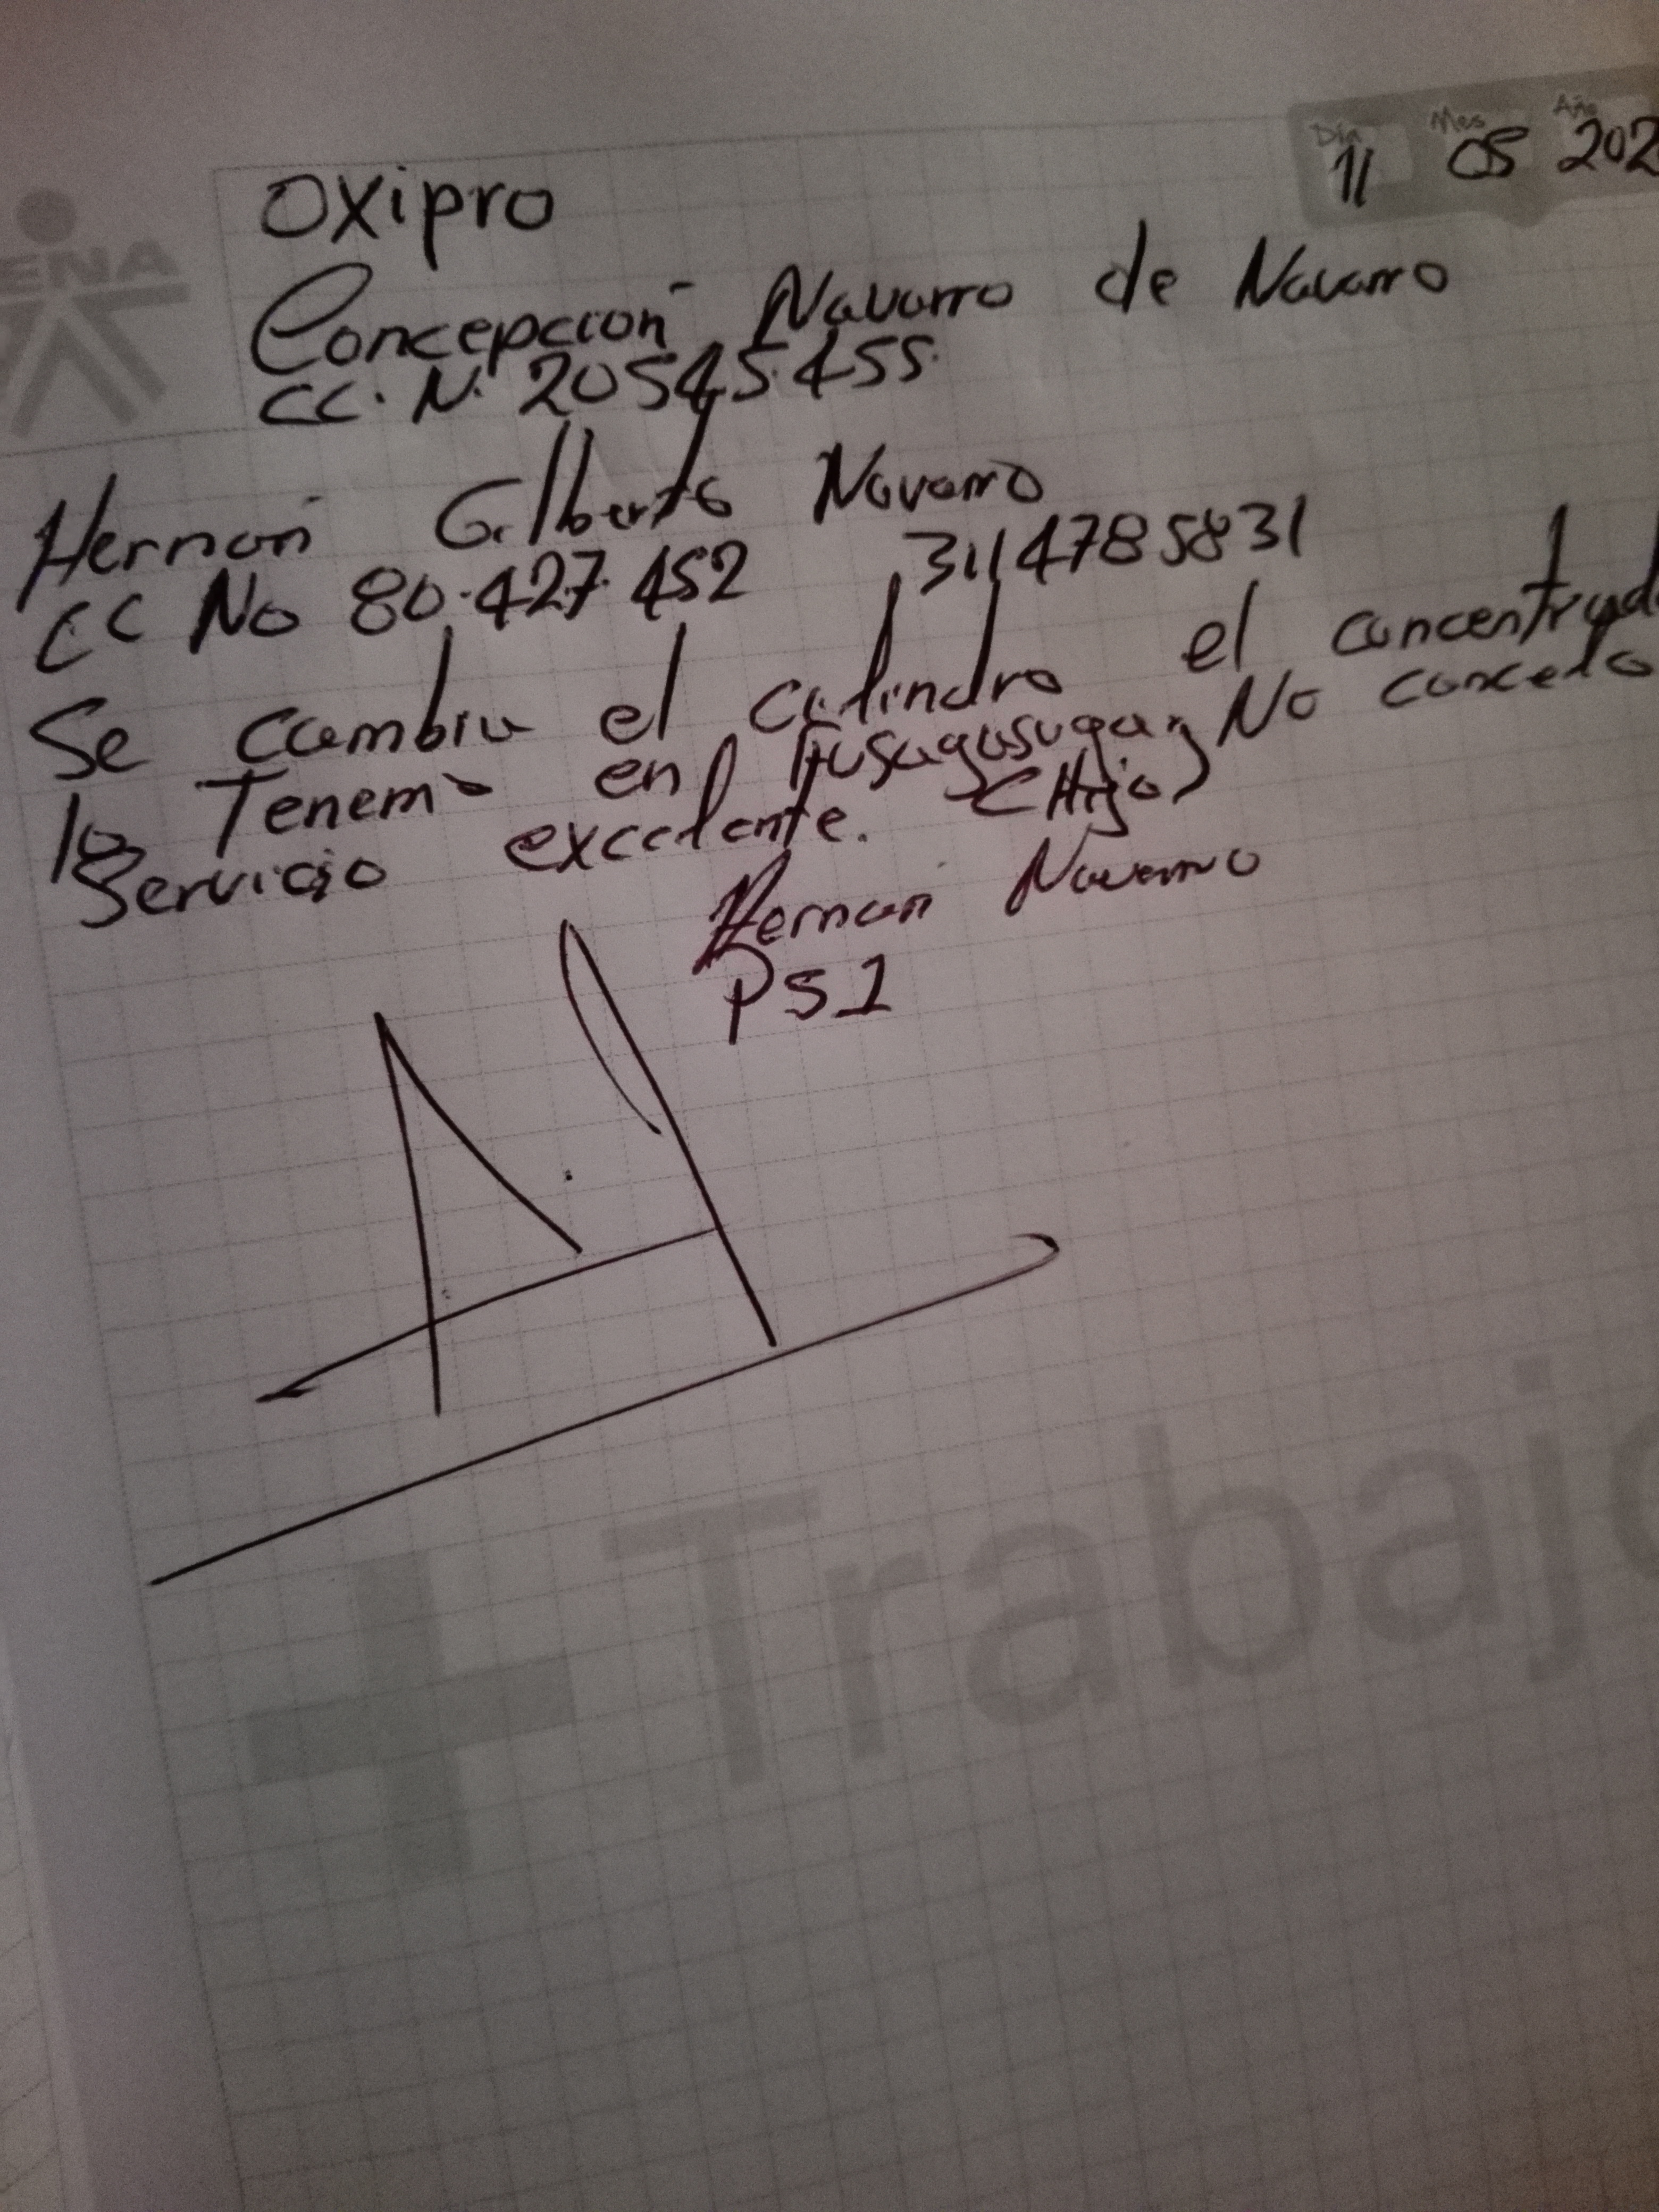 ENA
Día Mes Año
11 05 202
Oxipro
Concepción Navarro de Navarro
CC. N. 20545.455.
Hernán Gilberto Navarro
CC No 80.427.452 3114785831
Se cambia el cilindro el concentrad
lo Tenemos en Fusagasuga, No
Servicio excelente. (Hijo)
Hernan Navarro
PS1
+Trabajo